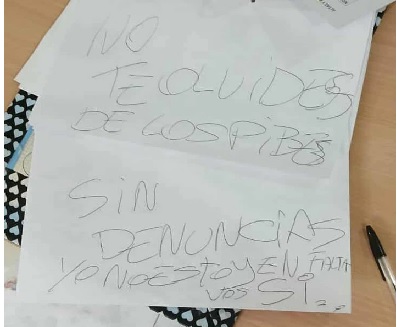 NO
TE OLVIDES
DE LOS PIBES
SIN
DENUNCIAS
YO NO ESTOY EN FALTA
VOS SI...